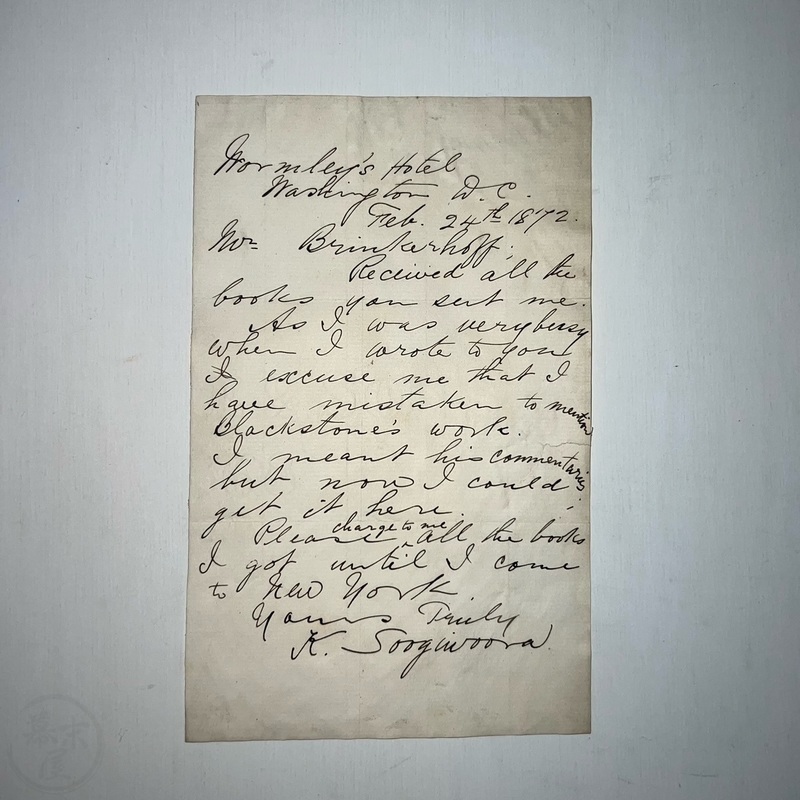 Wormley's Hotel
Washington D.C.
Feb. 24th 1872.
Mr. Brinkerhoff;
Received all the
books you sent me.
As I was very busy
when I wrote to you
I excuse me that I
have mistaken to mention
Blackstone's work.
I meant his commentaries
but now I could
get it here.
Please charge to me all the books
I got until I come
to New York
Yours Truly
K. Soogiwoora
幕末屋